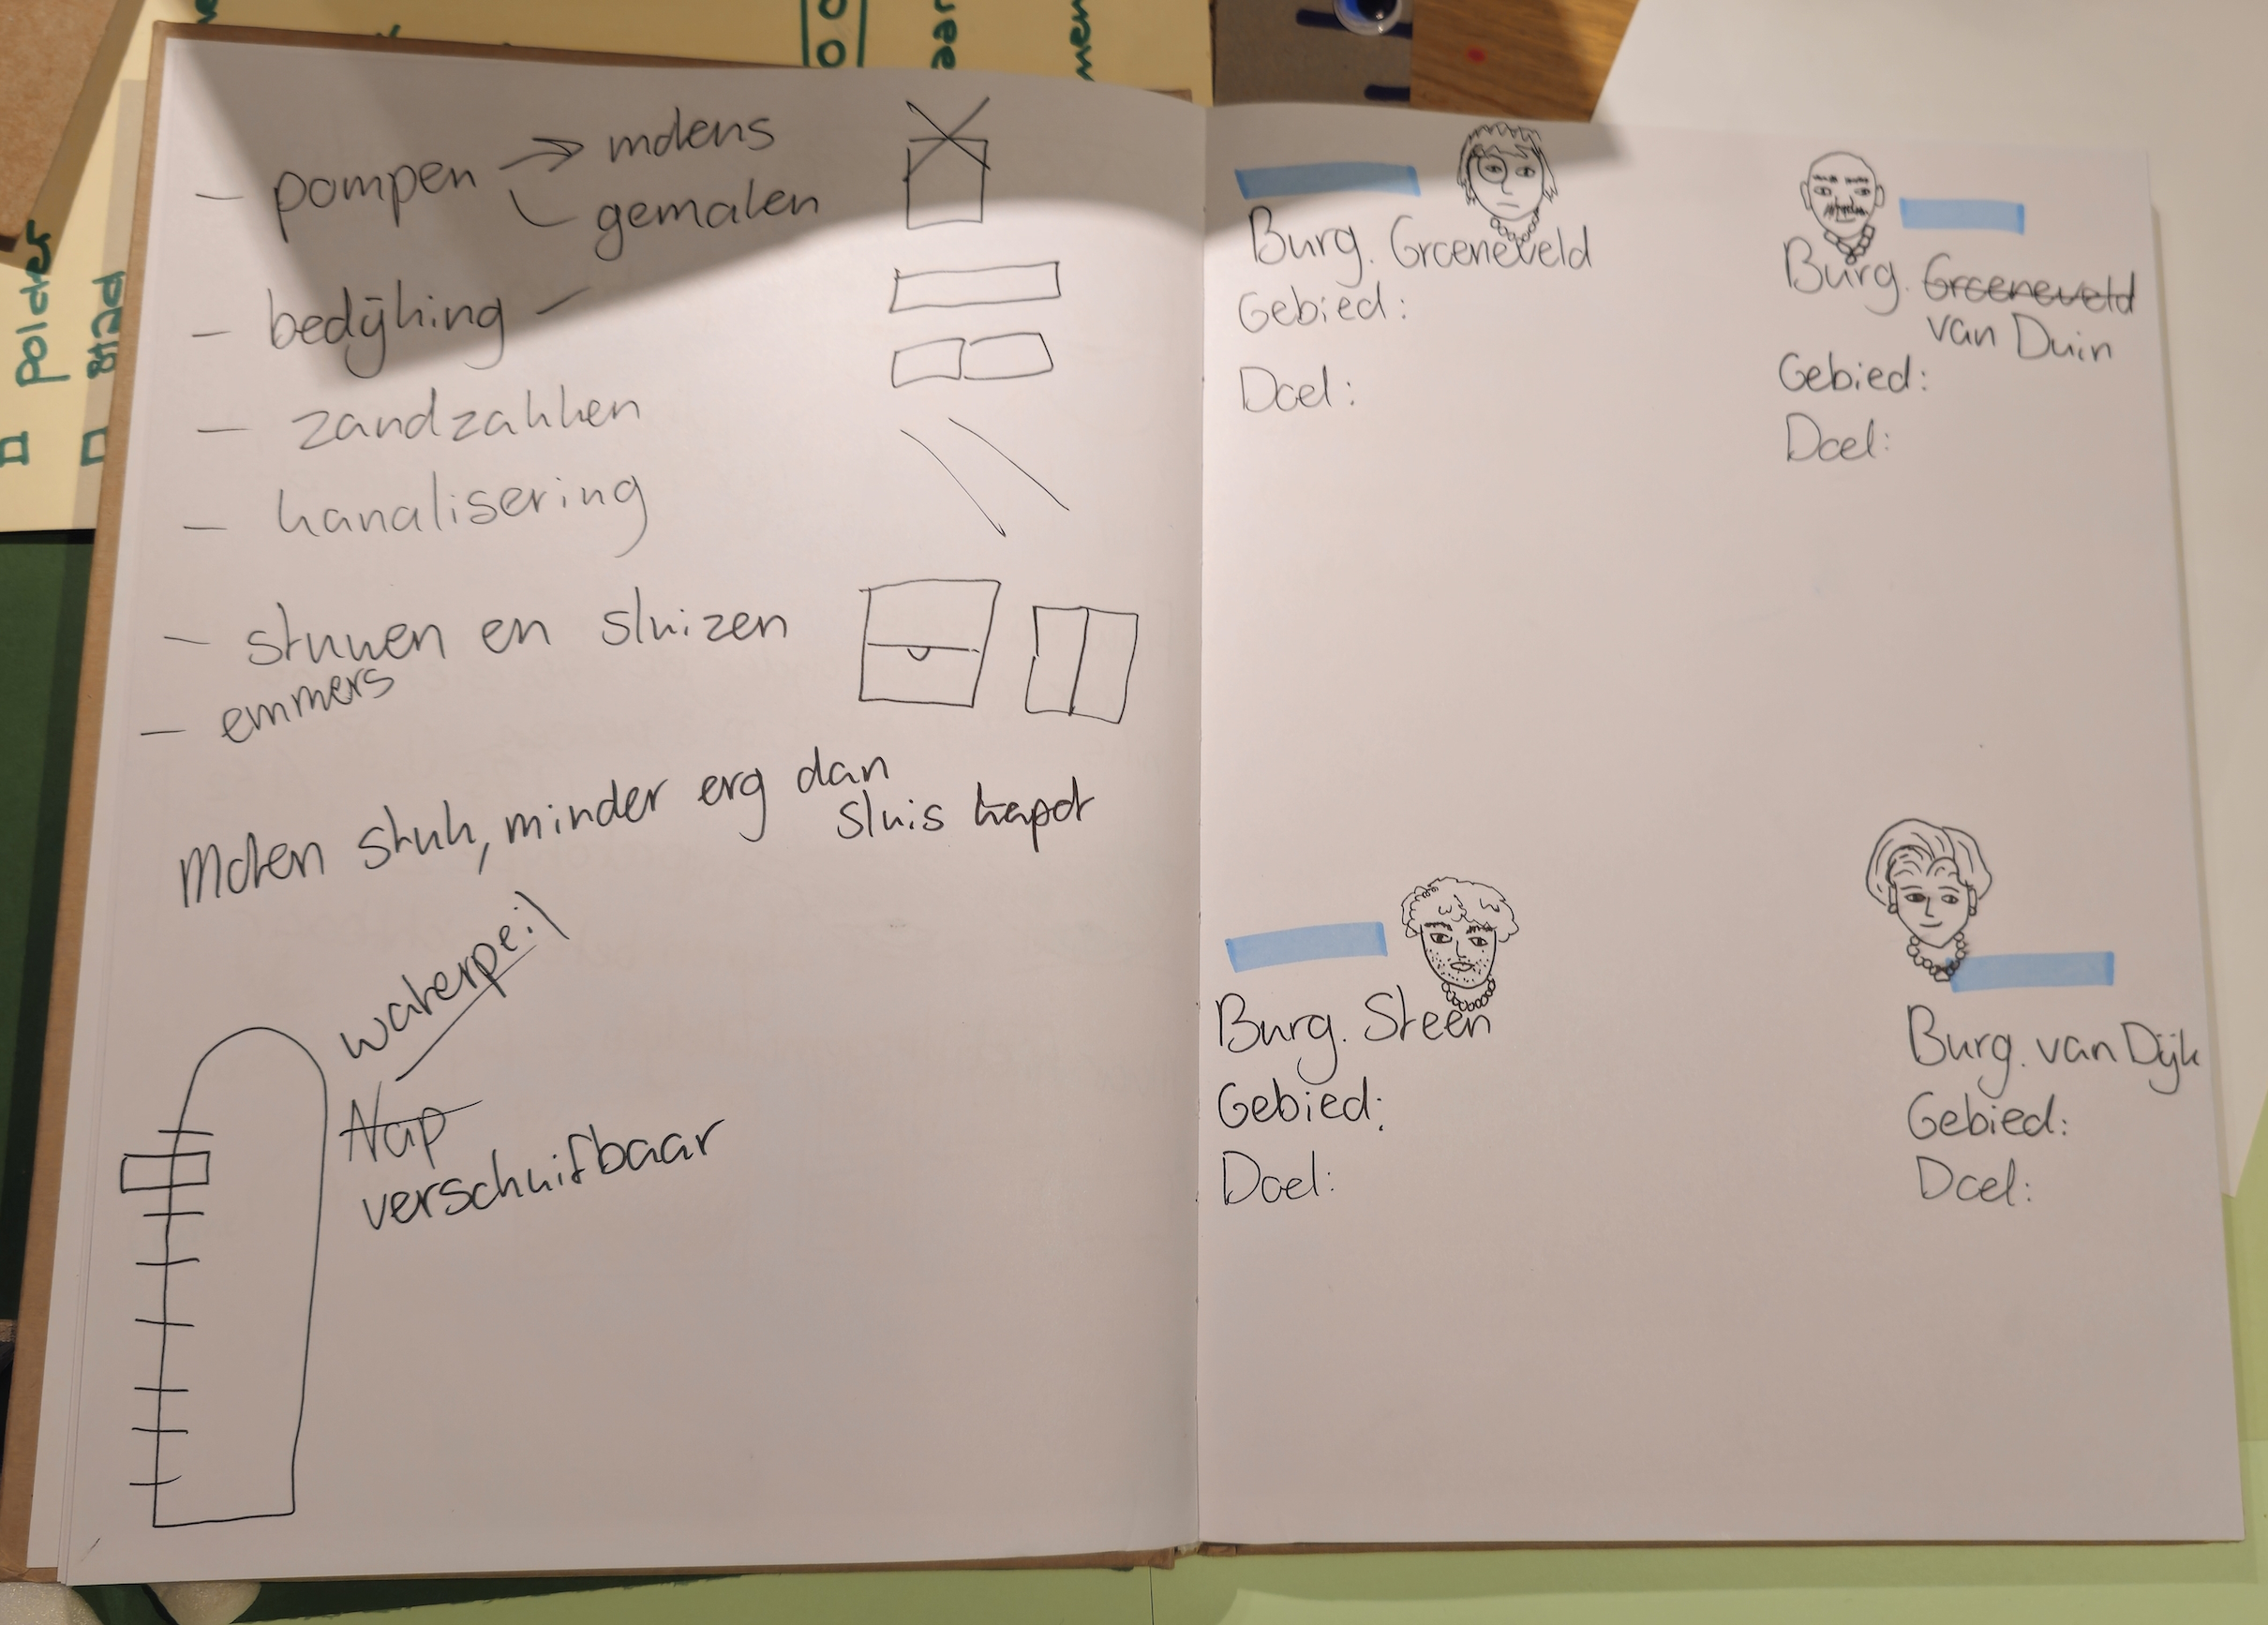 - pompen → molens
gemalen
- bedijking -
- zandzakken
- kanalisering
- stuwen en sluizen
- emmers
Molen stuk, minder erg dan
sluis kapot
waterpeil
Nap
verschuifbaar
Burg. Groeneveld
Gebied:
Doel:
Burg. Groeneveld
van Duin
Gebied:
Doel:
Burg. Steen
Gebied:
Doel:
Burg. van Dijk
Gebied:
Doel:
polder
stad